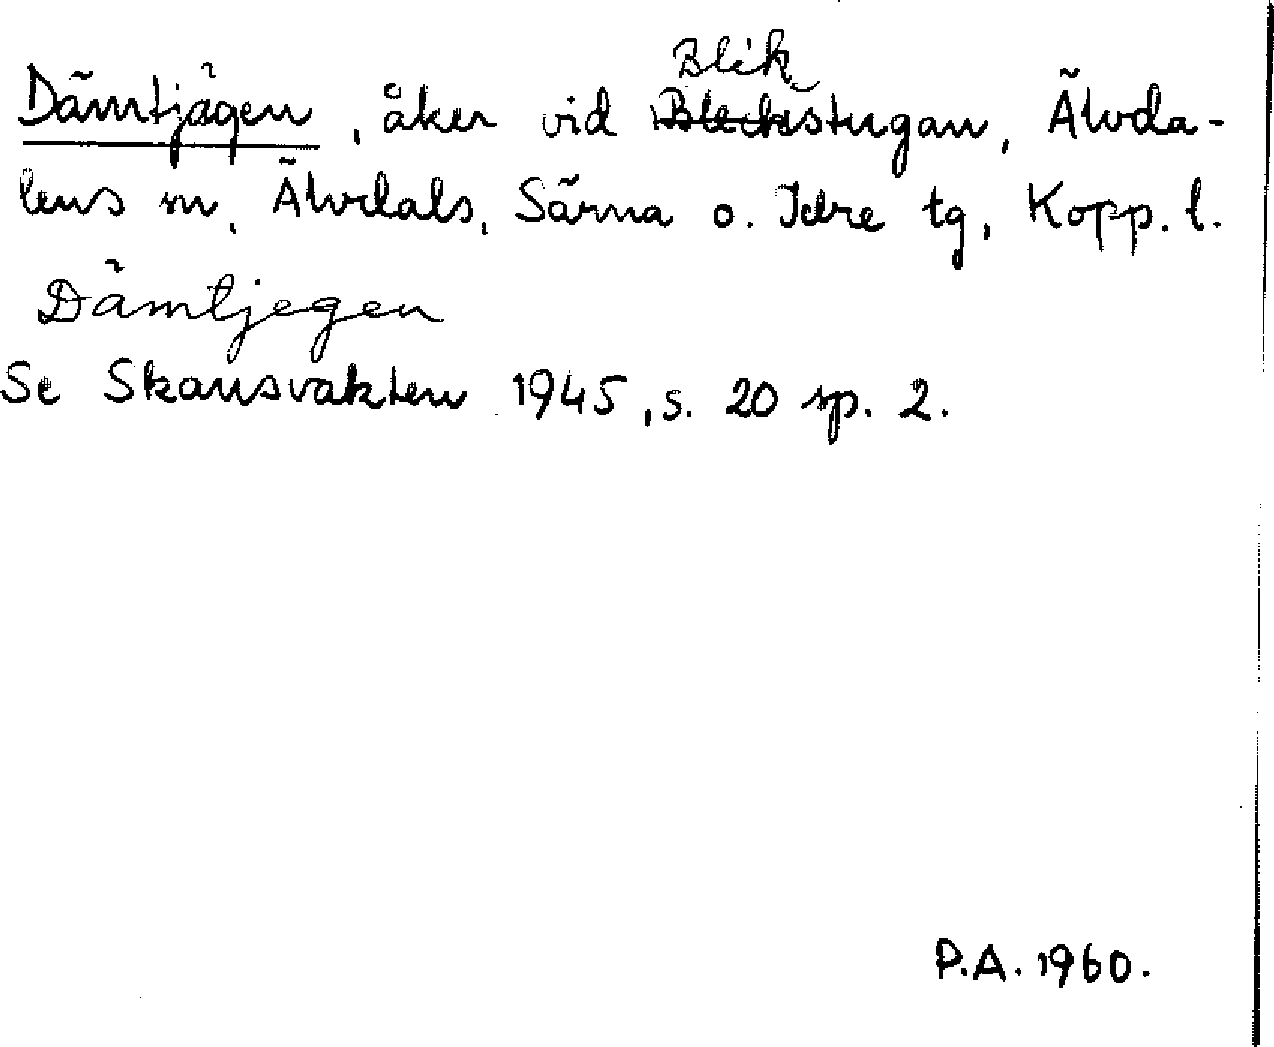 Blik
Dämtjägen, åker vid Bleckstugan, Älvda-
lens sn, Älvdals, Särna o. Idre tg, Kopp. l.
Dämtjegen
Se Skansvakten 1945, s. 20 sp. 2.
P.A. 1960.